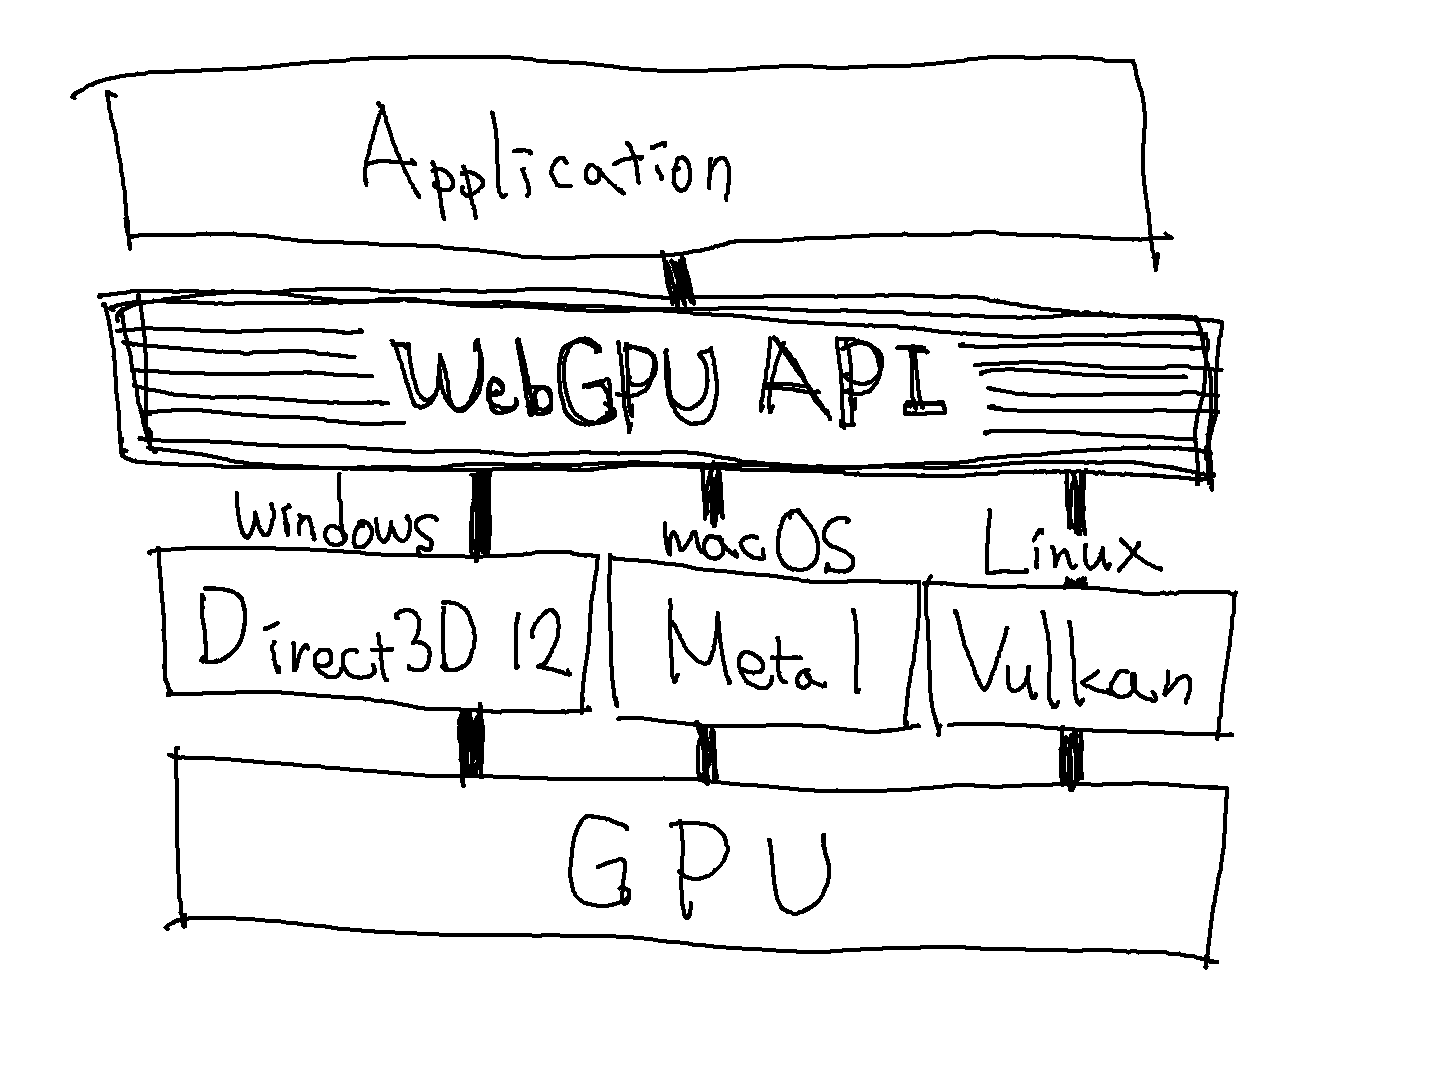 Application
WebGPU API
Windows macOS Linux
Direct3D 12 Metal Vulkan
GPU